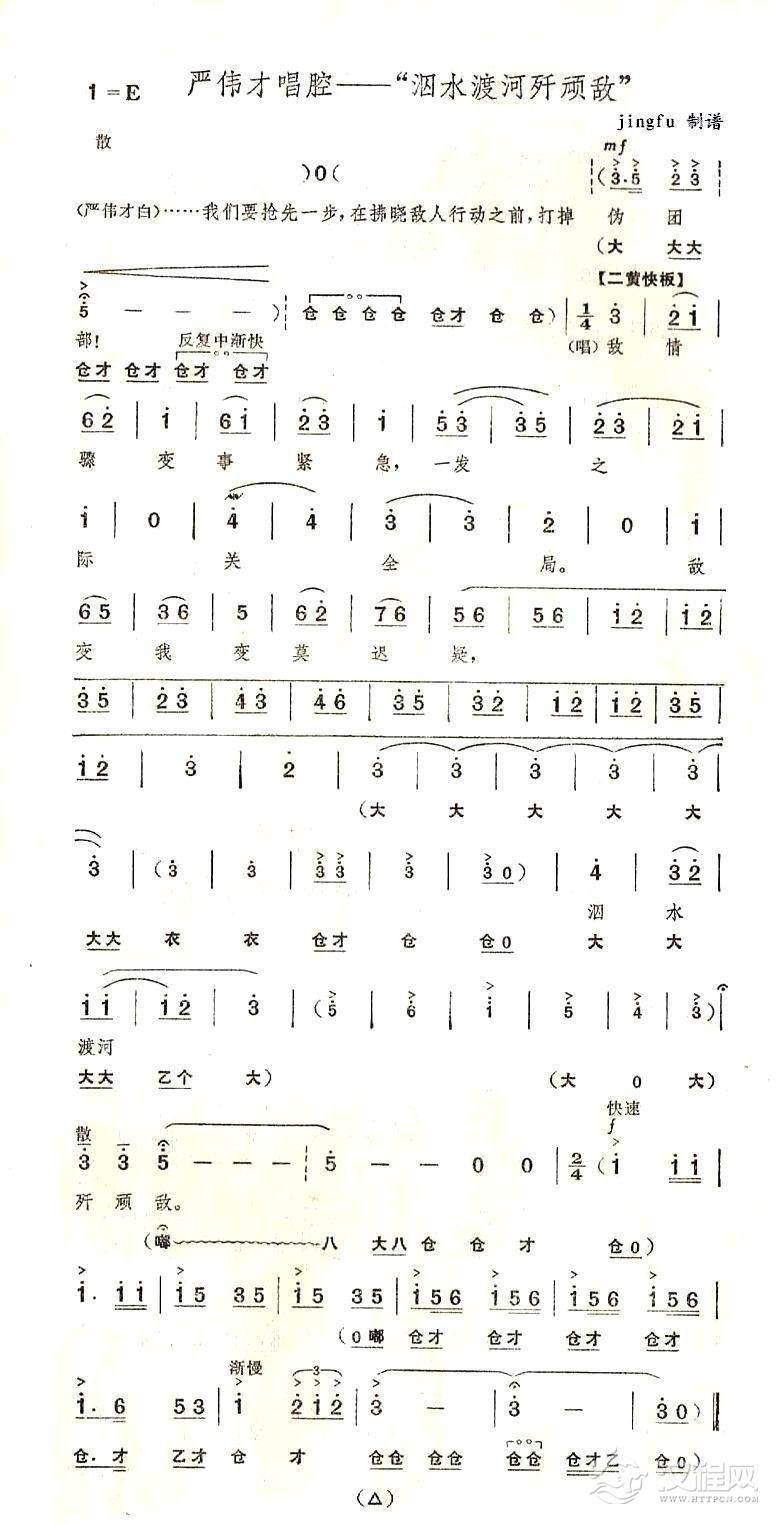 1=E 严伟才唱腔——“泅水渡河歼顽敌”
jingfu 制谱
散 mf
)0( (3·5 2 3
(严伟才白)……我们要抢先一步,在拂晓敌人行动之前,打掉 伪 团
(大 大大
【二黄快板】
5 — — — ) 仓 仓 仓 仓 仓才 仓 仓) 1/4 3 | 2 1 |
部! 反复中渐快 (唱)敌 情
仓才 仓才 仓才 仓才
6 2 | 1 | 6 1 | 2 3 | 1 | 5 3 | 3 5 | 2 3 | 2 1 |
骤 变 事 紧 急, 一 发 之
1 | 0 | 4 | 4 | 3 | 3 | 2 | 0 | 1
际 关 全 局。 敌
6 5 | 3 6 | 5 | 6 2 | 7 6 | 5 6 | 5 6 | 1 2 | 1 2 |
变 我 变 莫 迟 疑,
3 5 | 2 3 | 4 3 | 4 6 | 3 5 | 3 2 | 1 2 | 1 2 | 3 5 |
1 2 | 3 | 2 | 3 | 3 | 3 | 3 | 3 |
(大 大 大 大 大
3 | (3 | 3 | 3 3 | 3 | 3 0) | 4 | 3 2 |
泅 水
大大 衣 衣 仓才 仓 仓0 大 大
1 1 | 1 2 | 3 | (5 | 6 | 1 | 5 | 4 | 3) |
渡河
大大 乙个 大) (大 0 大)
快速
散 f
3 3 5 — — — 5 — — 0 0 | 2/4 (1 1 1 |
歼 顽 敌。
(嘟 八 大八 仓 仓 才 仓0)
1. 1 1 | 1 5 3 5 | 1 5 3 5 | 1 5 6 1 5 6 | 1 5 6 1 5 6 |
(0嘟 仓才 仓才 仓才 仓才
渐慢 3
1. 6 5 3 | 1 2 1 2 | 3 — | 3 — | 3 0) ‖
仓.才 乙才 仓 才 仓仓 仓仓 仓仓 仓才乙 仓0)
(△)
汉程网
WWW.HTTPCN.COM